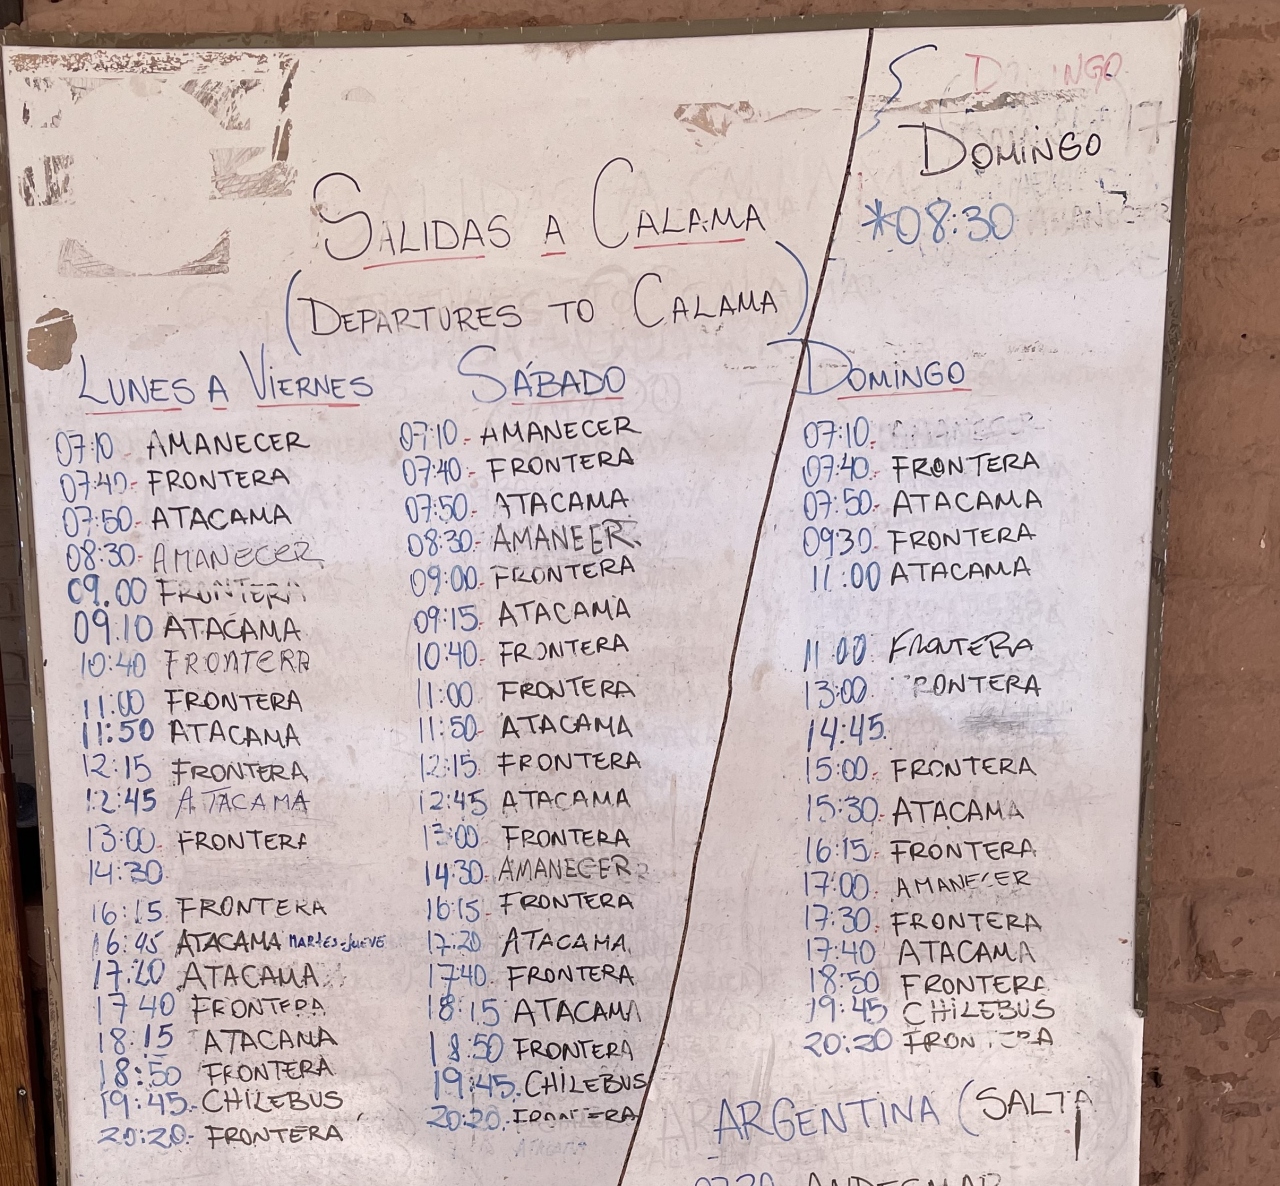 DOMINGO
DOMINGO
*08:30
SALIDAS A CALAMA
(DEPARTURES TO CALAMA)
LUNES A VIERNES
07:10- AMANECER
07:40- FRONTERA
07:50- ATACAMA
08:30- AMANECER
09.00 FRONTERA
09:10 ATACAMA
10:40 FRONTERA
11:00 FRONTERA
11:50 ATACAMA
12:15 FRONTERA
12:45 ATACAMA
13:00- FRONTERA
14:30
16:15 FRONTERA
16:45 ATACAMA MARTES-JUEVE
17:20 ATACAMA
17 40 FRONTERA
18:15 ATACAMA
18:50 FRONTERA
19:45- CHILEBUS
20:20- FRONTERA
SÁBADO
07:10- AMANECER
07:40- FRONTERA
07:50- ATACAMA
08:30- AMANEER
09:00- FRONTERA
09:15- ATACAMA
10:40- FRONTERA
11:00 FRONTERA
11:50- ATACAMA
12:15- FRONTERA
12:45 ATACAMA
13:00 FRONTERA
14:30- AMANECER
16:15- FRONTERA
17:20 ATACAMA
17:40- FRONTERA
18:15 ATACAMA
18:50 FRONTERA
19:45- CHILEBUS
20:20- FRONTERA
DOMINGO
07:10- AMANECER
07:40- FRONTERA
07:50- ATACAMA
09:30- FRONTERA
11:00 ATACAMA
11:00 FRONTERA
13:00 RONTERA
14:45-
15:00- FRONTERA
15:30- ATACAMA
16:15- FRONTERA
17:00- AMANECER
17:30- FRONTERA
17:40 ATACAMA
18:50 FRONTERA
19:45 CHILEBUS
20:20 FRONTERA
ARGENTINA (SALTA
07:30 ANDESMAR